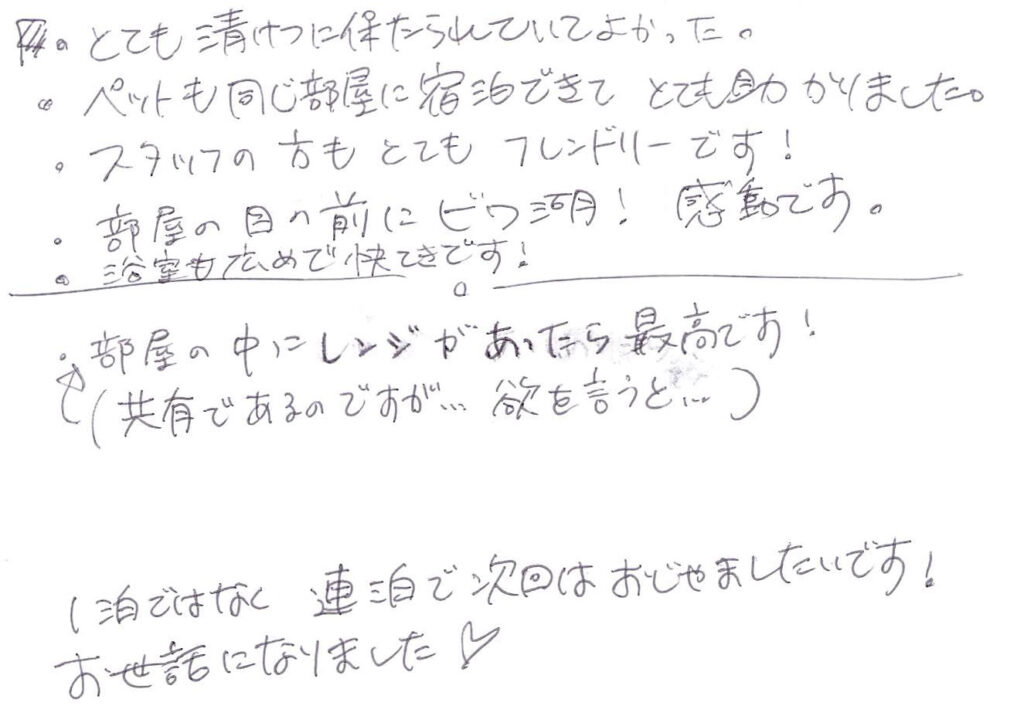 ・とても清けつに保たられていてよかった。
・ペットも同じ部屋に宿泊できて とても助かりました。
・スタッフの方も とても フレンドリーです!
・部屋の目の前に ビワ湖! 感動です。
・浴室も広めで快てきです!
・部屋の中にレンジがあったら最高です!
(共有であるのですが… 欲を言うと…)
1泊ではなく 連泊で次回は おじゃましたいです!
お世話になりました♡